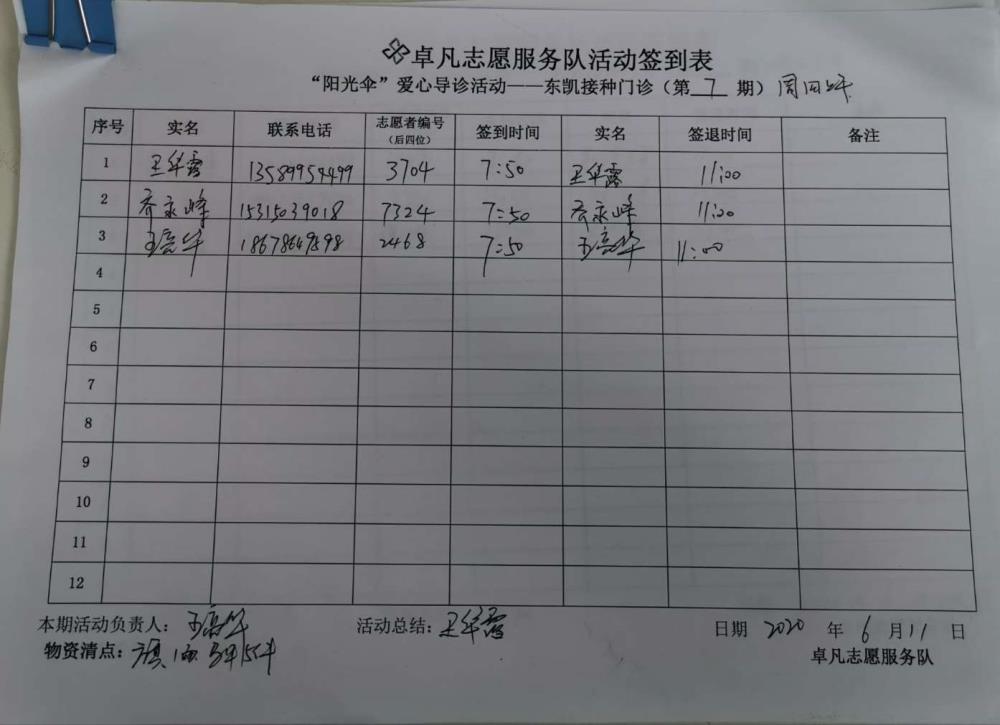 卓凡志愿服务队活动签到表
“阳光伞”爱心导诊活动——东凯接种门诊（第 7 期）周四上午
序号 实名 联系电话 志愿者编号（后四位） 签到时间 实名 签退时间 备注
1 王华露 13589954499 3704 7:50 王华露 11:00
2 齐永峰 15315039018 7324 7:50 齐永峰 11:00
3 18678649898 2468 7:50 11:00
4
5
6
7
8
9
10
11
12
本期活动负责人： 活动总结：王华露 日期 2020 年 6 月 11 日
物资清点：旗1面 卓凡志愿服务队